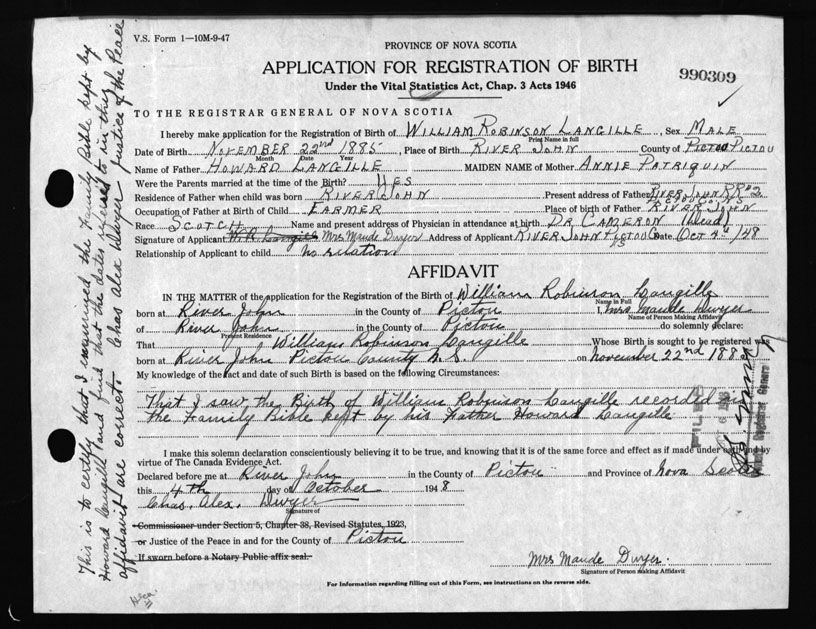 V.S. Form 1—10M-9-47
PROVINCE OF NOVA SCOTIA
APPLICATION FOR REGISTRATION OF BIRTH
Under the Vital Statistics Act, Chap. 3 Acts 1946
990309
TO THE REGISTRAR GENERAL OF NOVA SCOTIA
I hereby make application for the Registration of Birth of WILLIAM ROBINSON LANGILLE, Sex MALE
Print Name in full
Date of Birth NOVEMBER 22nd 1885, Place of Birth RIVER JOHN County of PICTOU PICTOU
Month Date Year
Name of Father HOWARD LANGILLE MAIDEN NAME of Mother ANNIE PATRIQUIN
Were the Parents married at the time of the Birth? YES
Residence of Father when child was born RIVER JOHN Present address of Father RIVER JOHN RR#2
Occupation of Father at Birth of Child FARMER Place of birth of Father RIVER JOHN
Race SCOTCH Name and present address of Physician in attendance at birth DR CAMERON (Dead)
Signature of Applicant W.R. Langille Mrs Maude Dwyer Address of Applicant RIVER JOHN PICTOU Co Date Oct 4th /48
Relationship of Applicant to child no relation
AFFIDAVIT
IN THE MATTER of the application for the Registration of the Birth of William Robinson Langille
Name in Full
born at River John in the County of Pictou I, Mrs Maude Dwyer
Name of Person Making Affidavit
of River John in the County of Pictou do solemnly declare:
Present Residence
That William Robinson Langille Whose Birth is sought to be registered was
born at River John Pictou County N.S. on November 22nd 1885
My knowledge of the fact and date of such Birth is based on the following Circumstances:
That I saw the Birth of William Robinson Langille recorded in
the Family Bible kept by his Father Howard Langille
FILED
I make this solemn declaration conscientiously believing it to be true, and knowing that it is of the same force and effect as if made under oath and by
virtue of The Canada Evidence Act.
Declared before me at River John in the County of Pictou and Province of Nova Scotia
this 4th day of October 1948
Chas. Alex. Dwyer
Signature of
Commissioner under Section 5, Chapter 38, Revised Statutes, 1923,
or Justice of the Peace in and for the County of Pictou
If sworn before a Notary Public affix seal.
Mrs Maude Dwyer.
Signature of Person making Affidavit
For Information regarding filling out of this Form, see instructions on the reverse side.
This is to certify that I examined the Family Bible kept by
Howard Langill and find that the dates to in this
affidavit are correct Chas Alex Dwyer Justice of the Peace